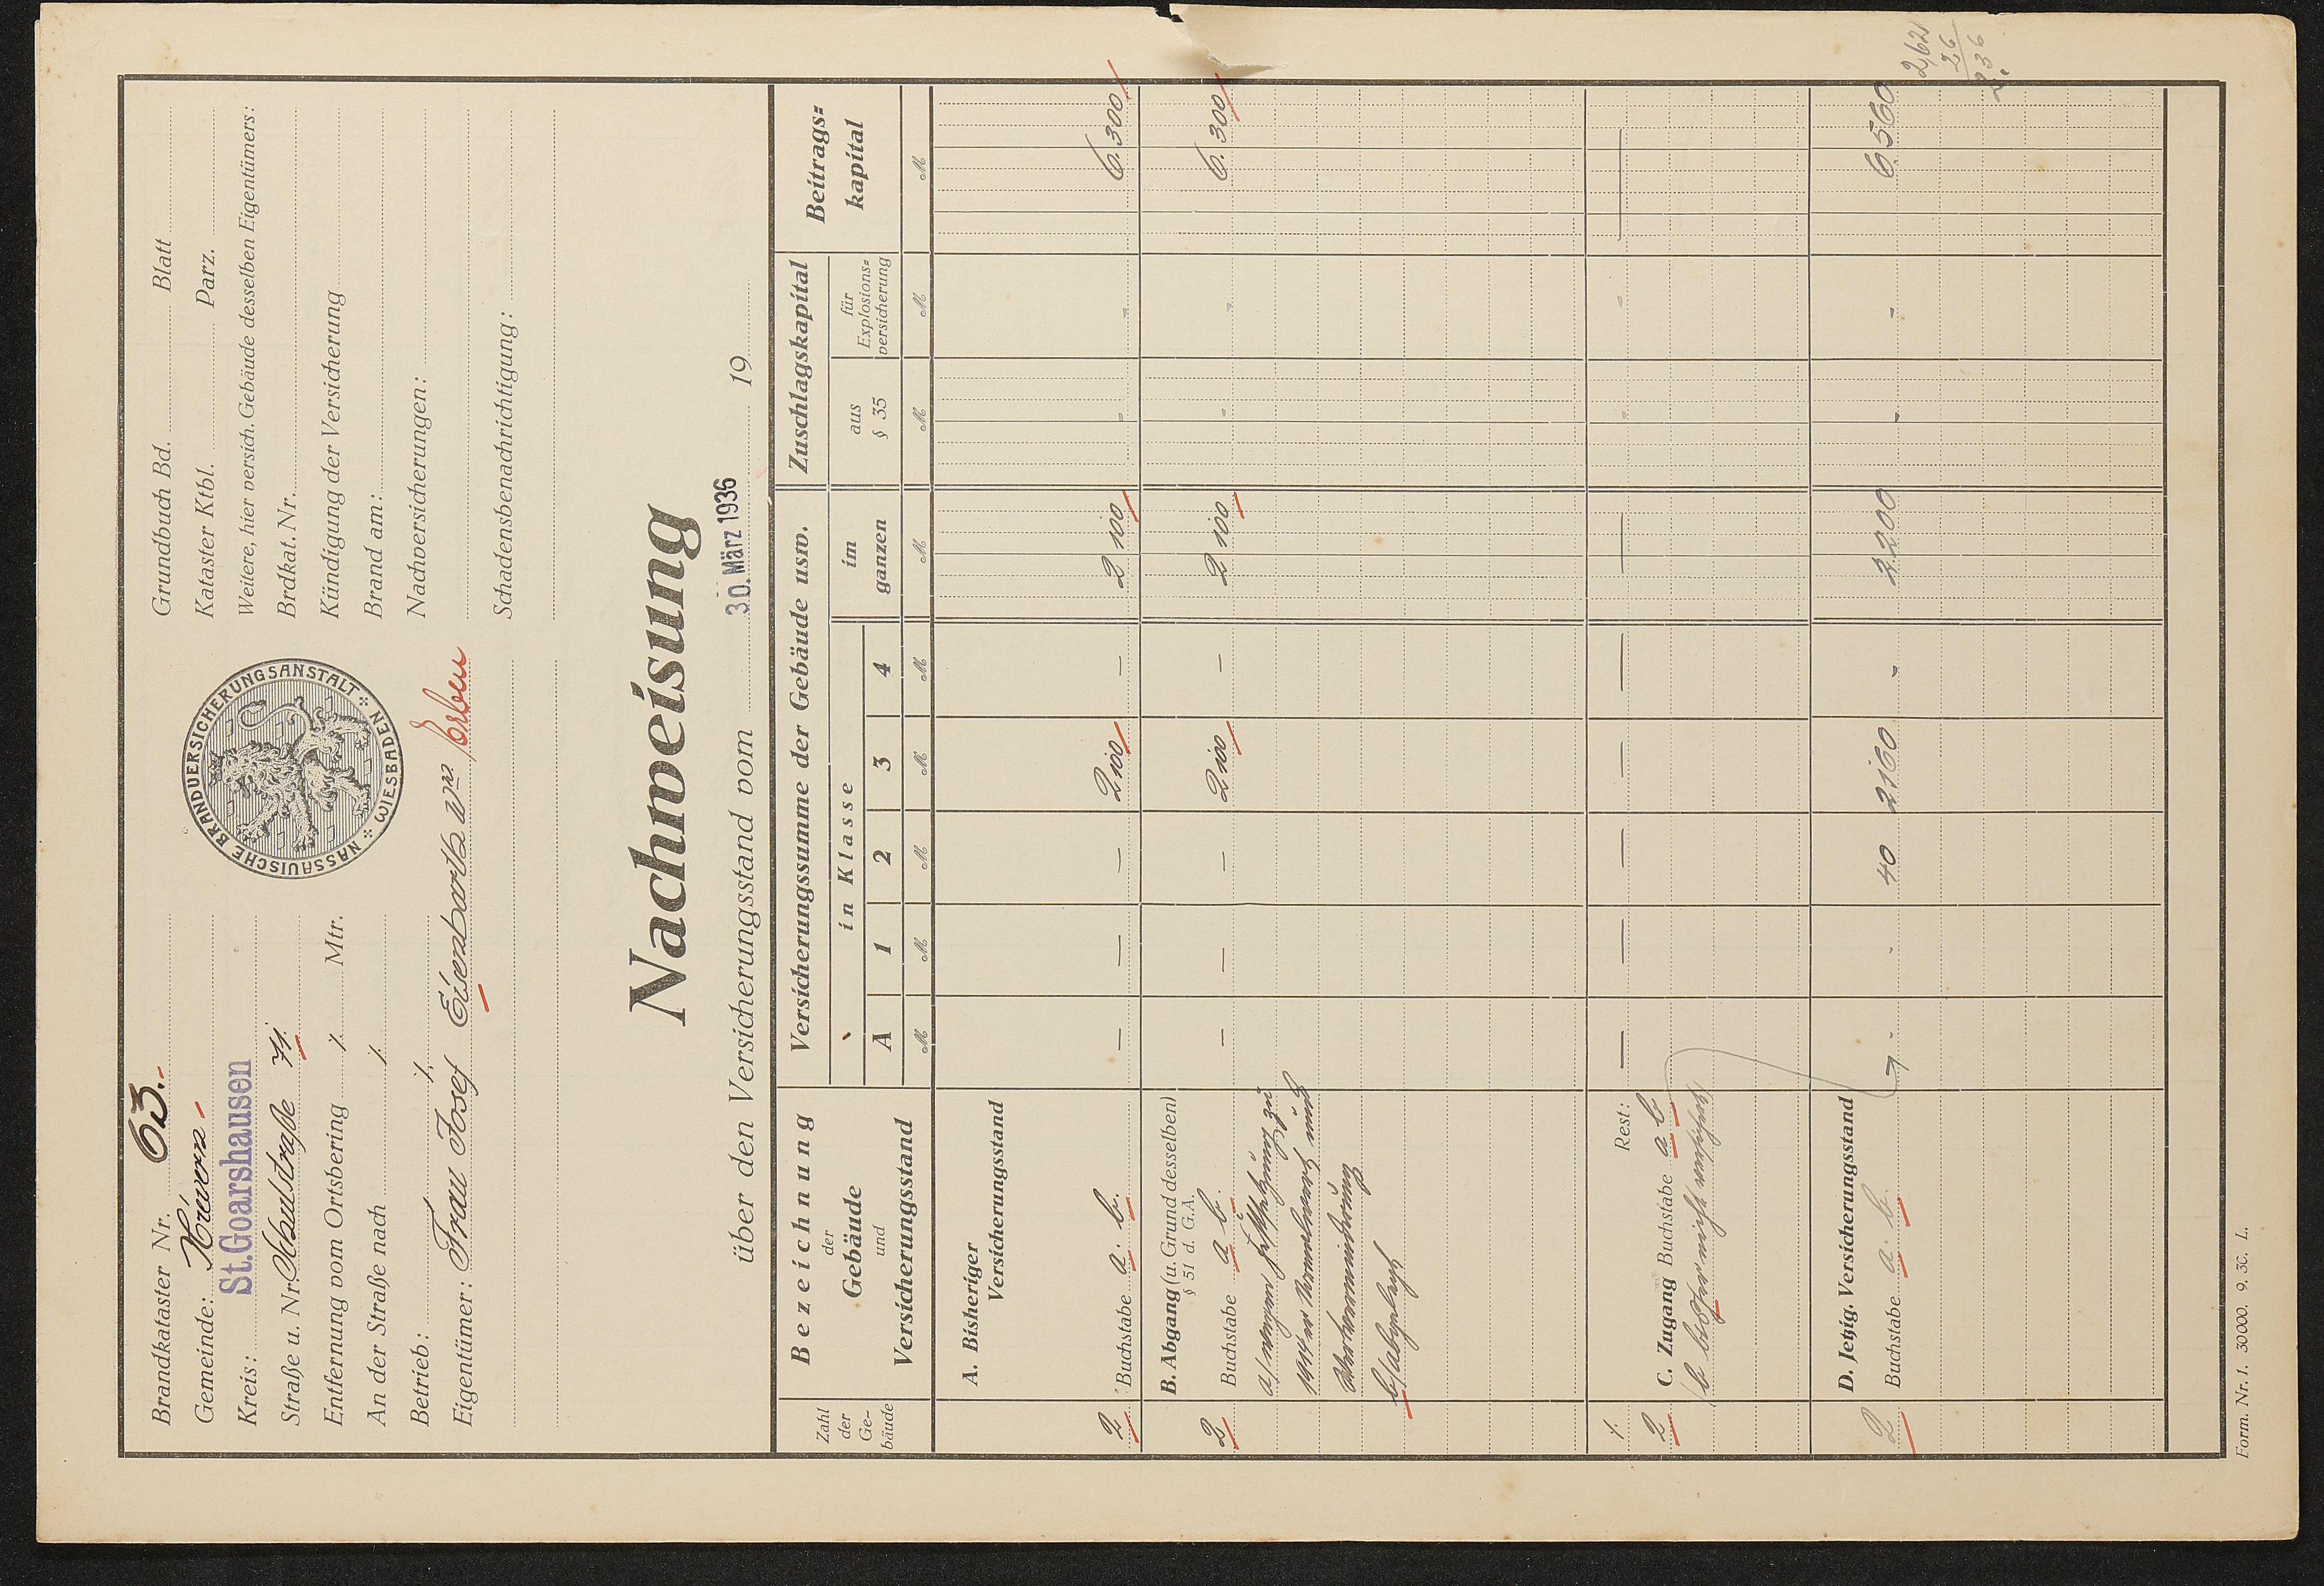 Brandkataster Nr. 63.
Gemeinde:
Kreis: St.Goarshausen
Straße u. Nr. Schulstraße 71.
Entfernung vom Ortsbering ./. Mtr.
An der Straße nach ./.
Betrieb: ./.
Eigentümer: Frau Josef Eisenbarth Ww. Erben
NASSAUISCHE BRANDVERSICHERUNGSANSTALT WIESBADEN
Grundbuch Bd. Blatt
Kataster Ktbl. Parz.
Weitere, hier versich. Gebäude desselben Eigentümers:
Brdkat. Nr.
Kündigung der Versicherung
Brand am:
Nachversicherungen:
Schadensbenachrichtigung:
Nachweisung
über den Versicherungsstand vom 30. März 1936 19
Zahl der Ge-bäude
Bezeichnung
der
Gebäude
und
Versicherungsstand
Versicherungssumme der Gebäude usw.
in Klasse
A 1 2 3 4
im ganzen
Zuschlagskapital
aus § 35
für Explosions=versicherung
Beitrags=kapital
M M M M M M M M M
A. Bisheriger
Versicherungsstand
2 Buchstabe a. b. — — — 2100 — 2 100 - - 6.300
B. Abgang (u. Grund desselben)
§ 51 d. G.A.
2 Buchstabe a b. — — — 2100 — 2 100 - - 6.300
a/ wegen zu
1914er und
b/ abgelegt
./. Rest: — — — — — — - - —
C. Zugang Buchstabe a b
2
b bisher nicht
D. Jetzig. Versicherungsstand
2 Buchstabe a. b. - - 40 2160 - 2200 - - 6560
2,62
26
2.36
Form. Nr. 1. 30000. 9. 3C. L.